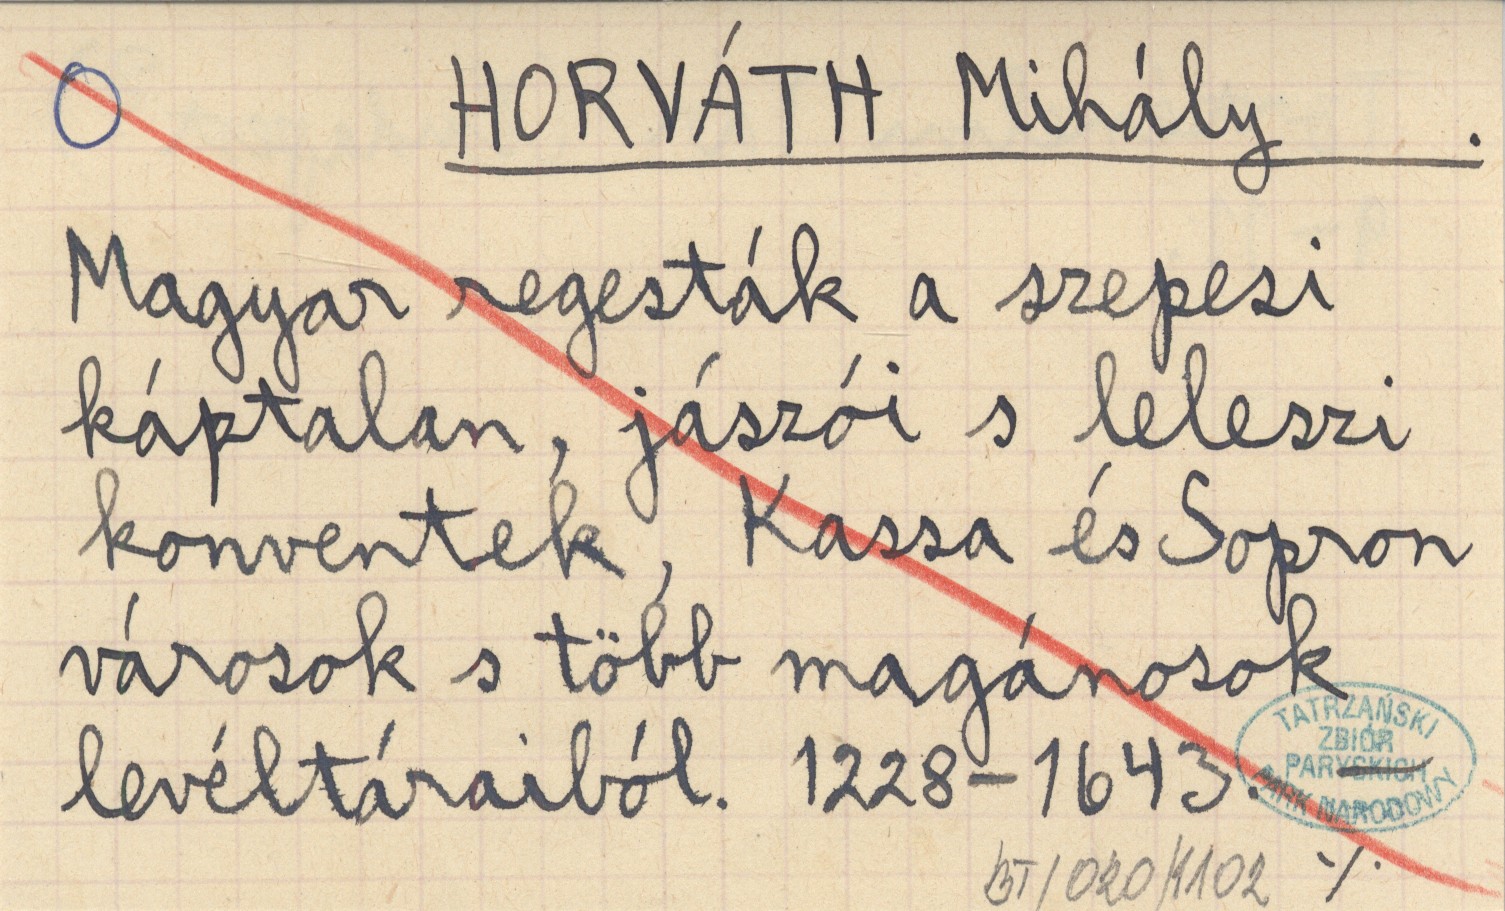 HORVÁTH Mihály .
Magyar regesták a szepesi
káptalan, jászói s leleszi
konventek, Kassa és Sopron
városok s több magánosok
levéltáraiból. 1228-1643.
TATRZAŃSKI
ZBIÓR
PARYSKICH
PARK NARODOWY
BT/020/1102 ·/.